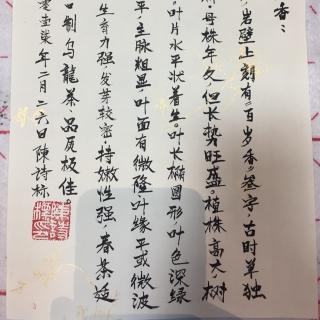 香：
岩壁上刻有“百岁香”叁字，古时单独
母株年久但长势旺盛。植株高大，树
。叶片水平状着生。叶长椭圆形叶色深绿
平，主脉粗显，叶面有微隆叶缘平或微波
生育力强发芽较密，持嫩性强，春茶延
口制乌龙茶品质极佳。
年二月二六日陳诗标